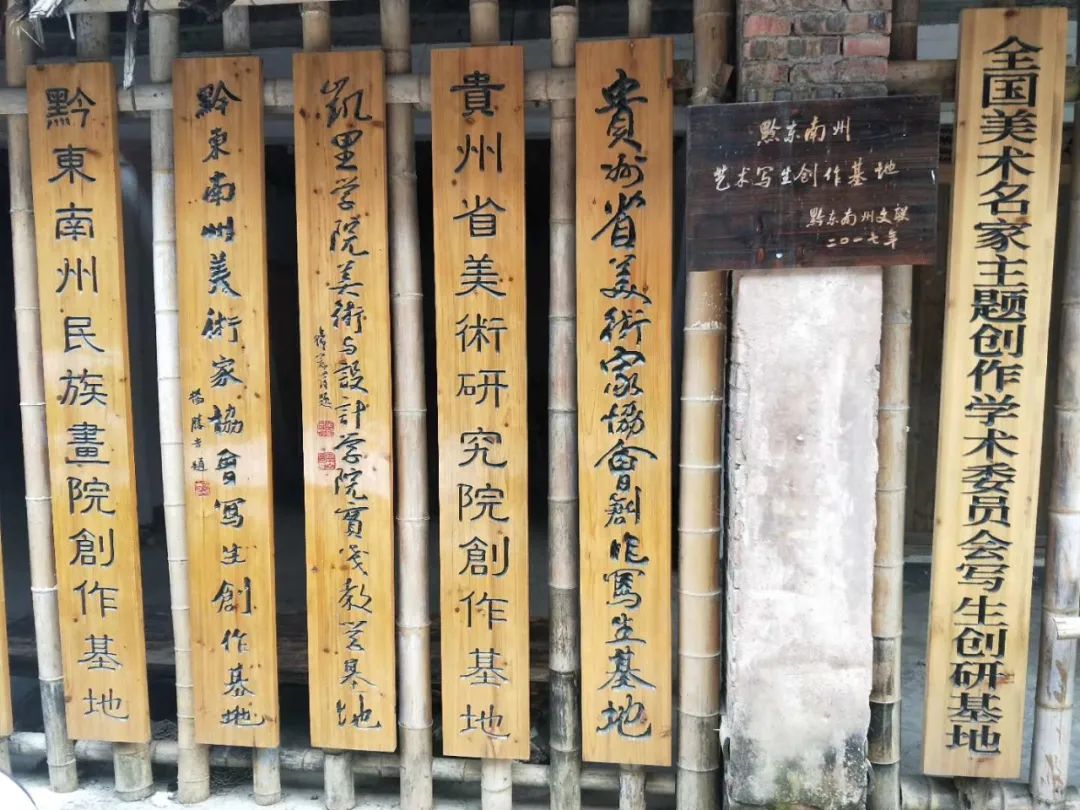 黔東南州民族畫院創作基地
黔東南州美術家協會寫生創作基地
凱里学院美術与設計学院實踐教学基地
貴州省美術研究院創作基地
貴州省美術家協會創作寫生基地
黔东南州
艺术写生创作基地
黔东南州文联
二〇一七年
全国美术名家主题创作学术委员会写生创研基地